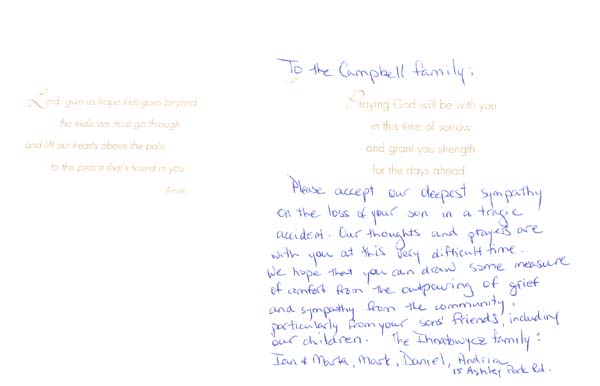 Lord, give us hope that goes beyond
the trials we must go through
and lift our hearts above the pain,
to the peace that's found in you.
Amen.
To the Campbell family:
Praying God will be with you
in this time of sorrow
and grant you strength
for the days ahead.
Please accept our deepest sympathy
on the loss of your son in a tragic
accident. Our thoughts and prayers are
with you at this very difficult time.
We hope that you can draw some measure
of comfort from the outpouring of grief
and sympathy from the community,
particularly from your sons' friends, including
our children. The Ihnatowycz family:
Ian & Marta, Mark, Daniel, Andrian
15 Ashley Park Rd.